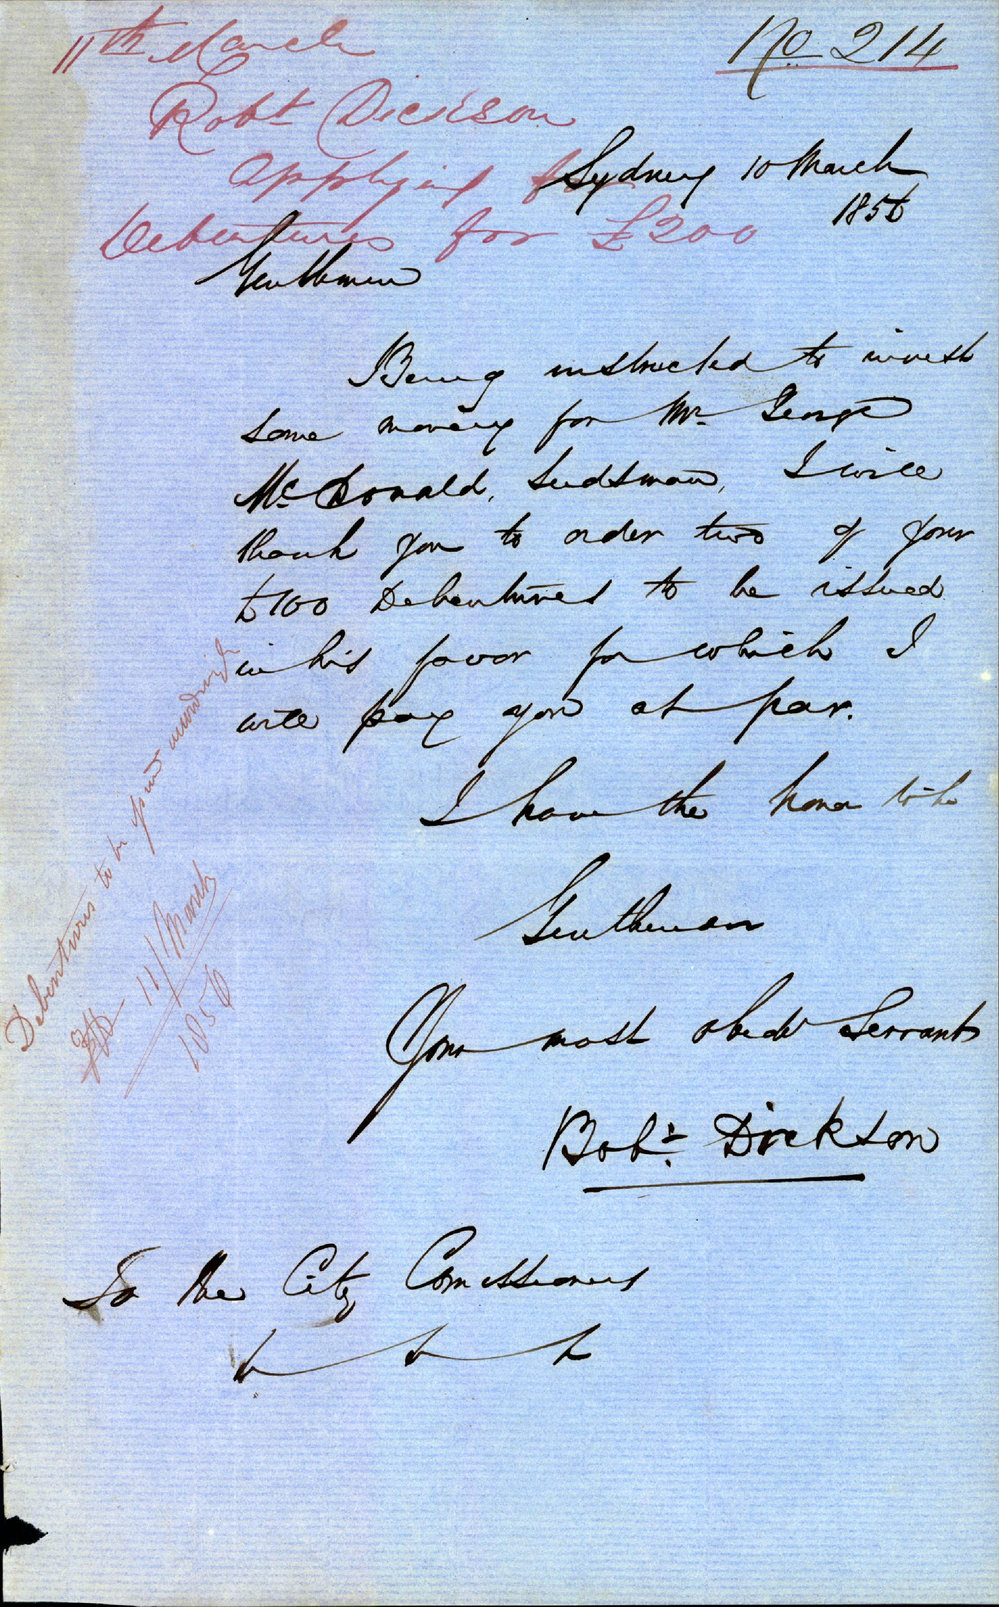 11th March
No 214
Robt Dickson
applying for
Debentures for £200
Sydney 10 March
1856
Gentlemen
Being instructed to invest
some money for Mr George
McDonald, Leedsman, I will
thank you to order two of your
£100 Debentures to be issued
in his favor for which I
will pay you at par.
I have the honor to be
Gentlemen
Your most obedt Servant
Robt Dickson
To the City Comissioners
Debentures to be
11/March
1856